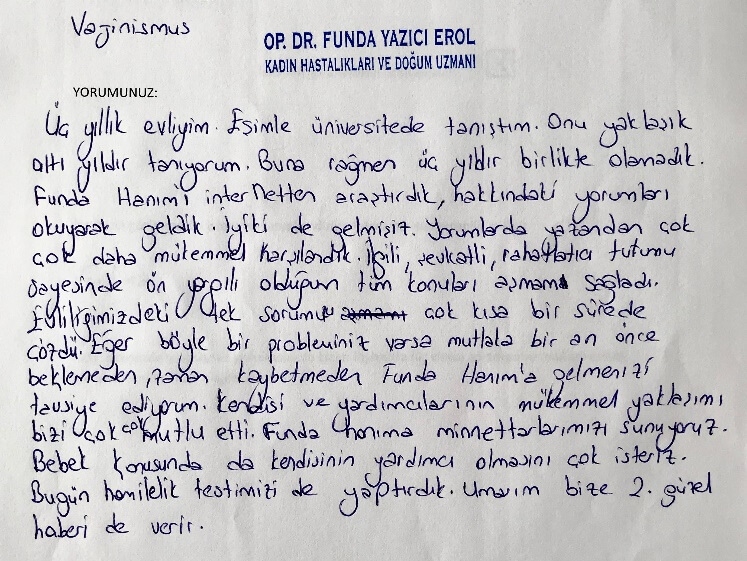 Vajinismus
OP. DR. FUNDA YAZICI EROL
KADIN HASTALIKLARI VE DOĞUM UZMANI
YORUMUNUZ:
Üç yıllık evliyim. Eşimle üniversitede tanıştım. Onu yaklaşık
altı yıldır tanıyorum. Buna rağmen üç yıldır birlikte olamadık.
Funda Hanım'ı internetten araştırdık, hakkındaki yorumları
okuyarak geldik. İyiki de gelmişiz. Yorumlarda yazandan çok
çok daha mükemmel karşılandık. İlgili, şevkatli, rahatlatıcı tutumu
sayesinde ön yargılı olduğum tüm konuları aşmamı sağladı.
Evliliğimizdeki tek sorunu çok kısa bir sürede
çözdü. Eğer böyle bir probleminiz varsa mutlaka bir an önce
beklemeden, zaman kaybetmeden Funda Hanım'a gelmenizi
tavsiye ediyorum. Kendisi ve yardımcılarının mükemmel yaklaşımı
bizi çok çok mutlu etti. Funda hanıma minnettarlarımızı sunuyoruz.
Bebek konusunda da kendisinin yardımcı olmasını çok isteriz.
Bugün hamilelik testimizi de yaptırdık. Umarım bize 2. güzel
haberi de verir.